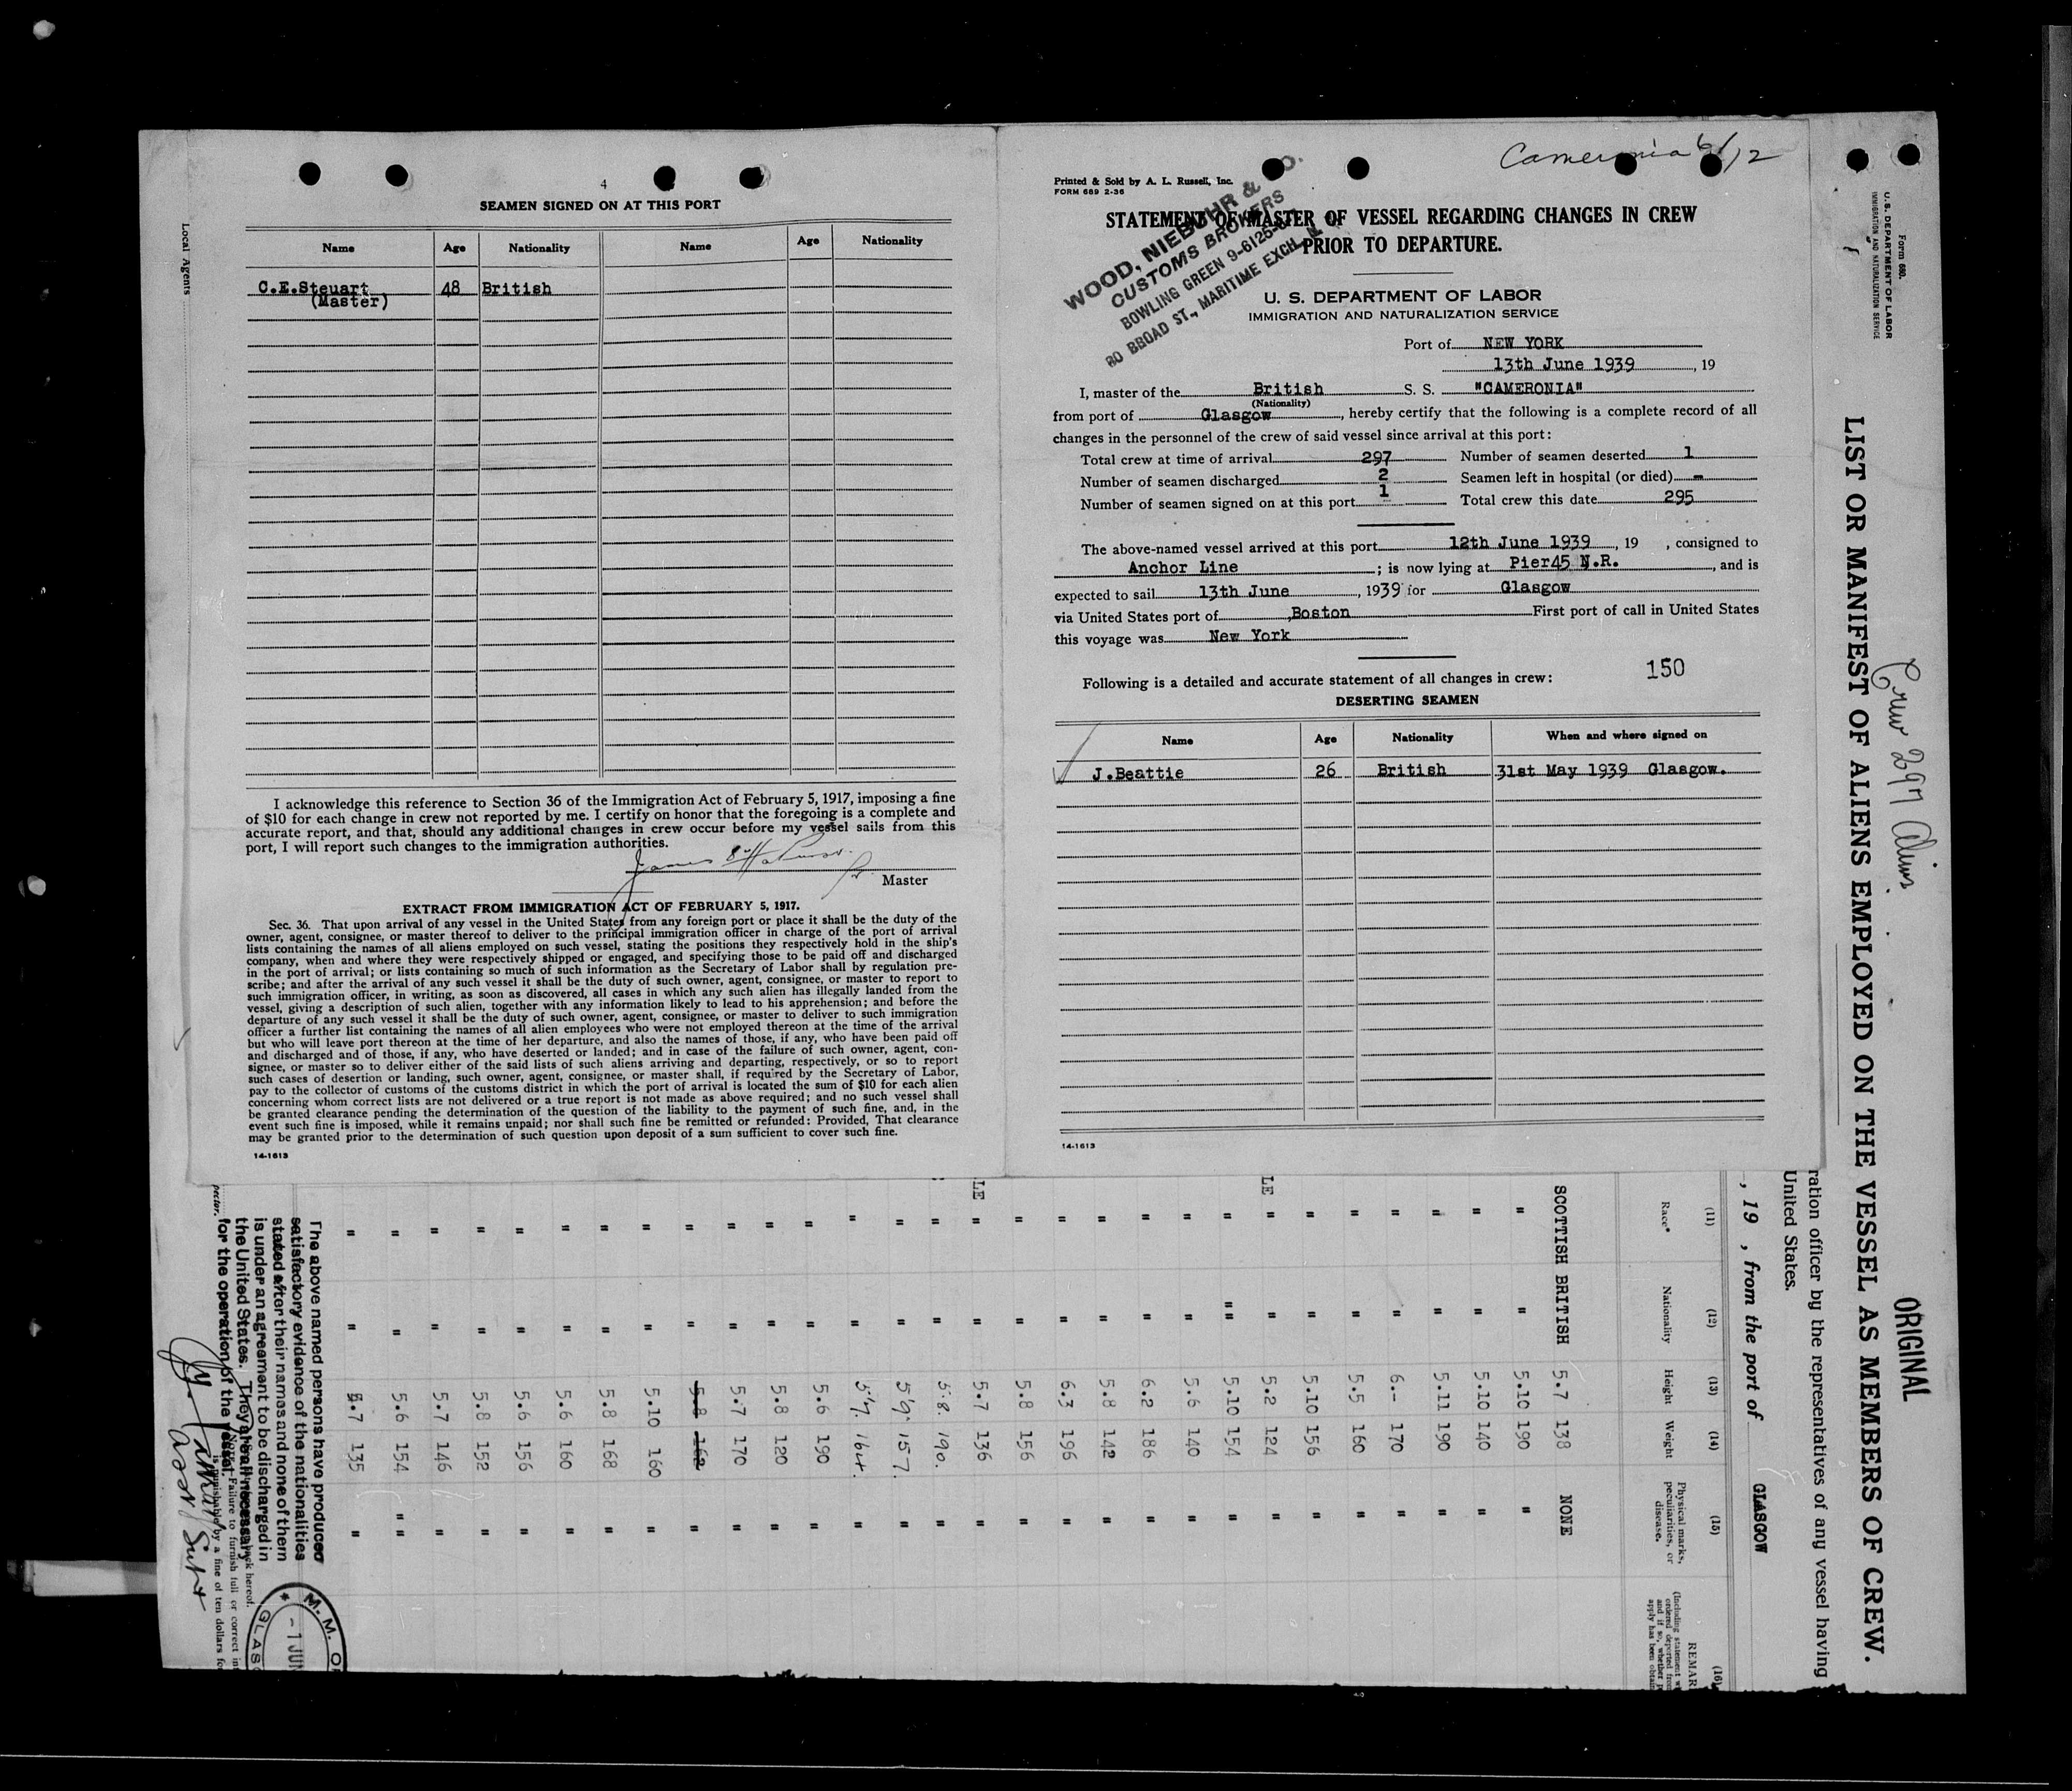 4
SEAMEN SIGNED ON AT THIS PORT
Name Age Nationality Name Age Nationality
C.E.Steuart 48 British
(Master)
Local Agents
I acknowledge this reference to Section 36 of the Immigration Act of February 5, 1917, imposing a fine
of $10 for each change in crew not reported by me. I certify on honor that the foregoing is a complete and
accurate report, and that, should any additional changes in crew occur before my vessel sails from this
port, I will report such changes to the immigration authorities.
Master
EXTRACT FROM IMMIGRATION ACT OF FEBRUARY 5, 1917.
Sec. 36. That upon arrival of any vessel in the United States from any foreign port or place it shall be the duty of the
owner, agent, consignee, or master thereof to deliver to the principal immigration officer in charge of the port of arrival
lists containing the names of all aliens employed on such vessel, stating the positions they respectively hold in the ship's
company, when and where they were respectively shipped or engaged, and specifying those to be paid off and discharged
in the port of arrival; or lists containing so much of such information as the Secretary of Labor shall by regulation pre-
scribe; and after the arrival of any such vessel it shall be the duty of such owner, agent, consignee, or master to report to
such immigration officer, in writing, as soon as discovered, all cases in which any such alien has illegally landed from the
vessel, giving a description of such alien, together with any information likely to lead to his apprehension; and before the
departure of any such vessel it shall be the duty of such owner, agent, consignee, or master to deliver to such immigration
officer a further list containing the names of all alien employees who were not employed thereon at the time of the arrival
but who will leave port thereon at the time of her departure, and also the names of those, if any, who have been paid off
and discharged and of those, if any, who have deserted or landed; and in case of the failure of such owner, agent, con-
signee, or master so to deliver either of the said lists of such aliens arriving and departing, respectively, or so to report
such cases of desertion or landing, such owner, agent, consignee, or master shall, if required by the Secretary of Labor,
pay to the collector of customs of the customs district in which the port of arrival is located the sum of $10 for each alien
concerning whom correct lists are not delivered or a true report is not made as above required; and no such vessel shall
be granted clearance pending the determination of the question of the liability to the payment of such fine, and, in the
event such fine is imposed, while it remains unpaid; nor shall such fine be remitted or refunded: Provided, That clearance
may be granted prior to the determination of such question upon deposit of a sum sufficient to cover such fine.
14-1613
Cameronia 6/12
Printed & Sold by A. L. Russell, Inc.
FORM 689 2-36
WOOD, NIEBUHR & CO.
CUSTOMS BROKERS
BOWLING GREEN 9-6125
80 BROAD ST., MARITIME EXCH. N. Y.
STATEMENT OF MASTER OF VESSEL REGARDING CHANGES IN CREW
PRIOR TO DEPARTURE.
U. S. DEPARTMENT OF LABOR
IMMIGRATION AND NATURALIZATION SERVICE
Port of NEW YORK
13th June 1939, 19
I, master of the British S. S. "CAMERONIA"
(Nationality)
from port of Glasgow, hereby certify that the following is a complete record of all
changes in the personnel of the crew of said vessel since arrival at this port:
Total crew at time of arrival 297 Number of seamen deserted 1
Number of seamen discharged 2 Seamen left in hospital (or died) -
Number of seamen signed on at this port 1 Total crew this date 295
The above-named vessel arrived at this port 12th June 1939, 19 , consigned to
Anchor Line ; is now lying at Pier45 N.R., and is
expected to sail 13th June, 1939 for Glasgow
via United States port of Boston First port of call in United States
this voyage was New York
150
Following is a detailed and accurate statement of all changes in crew:
DESERTING SEAMEN
Name Age Nationality When and where signed on
J.Beattie 26 British 31st May 1939 Glasgow.
14-1613
Form 680.
U. S. DEPARTMENT OF LABOR
IMMIGRATION AND NATURALIZATION SERVICE
ORIGINAL
Crew 297
LIST OR MANIFEST OF ALIENS EMPLOYED ON THE VESSEL AS MEMBERS OF CREW.
ration officer by the representatives of any vessel having
United States.
, 19 , from the port of GLASGOW
(11) (12) (13) (14) (15) (16)
Race* Nationality Height Weight Physical marks, peculiarities, or disease. REMAR
SCOTTISH BRITISH 5.7 138 NONE
" " 5.10 190 "
" " 5.10 140 "
" " 5.11 190 "
" " 6.- 170 "
" " 5.5 160 "
" " 5.10 156 "
LE " " 5.2 124 "
" " " 5.10 154 "
" " 5.6 140 "
" " 6.2 186 "
" " 5.8 142 "
" " 6.3 196 "
" " 5.8 156 "
LE " " 5.7 136 "
" " 5.8. 190. "
" " 5'9" 157. "
" " 5'7. 164. "
" " 5.6 190 "
" " 5.8 120 "
" " 5.7 170 "
" " 5.8 162 "
" " 5.10 160 "
" " 5.8 168 "
" " 5.6 160 "
" " 5.6 156 "
" " 5.8 152 "
" " 5.7 146 "
" " 5.6 154 " "
" " 5.7 135 "
The above named persons have produced
satisfactory evidence of the nationalities
stated after their names and none of them
is under an agreement to be discharged in
the United States. They are all necessary
for the operation of the vessel.
back hereof.
Failure to furnish full or correct in
is punishable by a fine of ten dollars fo
pector.
Asst Supt
M. M. O
- 1 JUN
GLASG